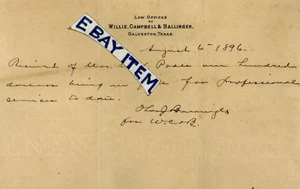 LAW OFFICES
OF
WILLIE, CAMPBELL & BALLINGER,
GALVESTON, TEXAS.
August 6th 1896.
EBAY ITEM
Received of Mrs. Rosa one hundred
dollars being in for professional
services to date.
Ballinger
for W. C & B.